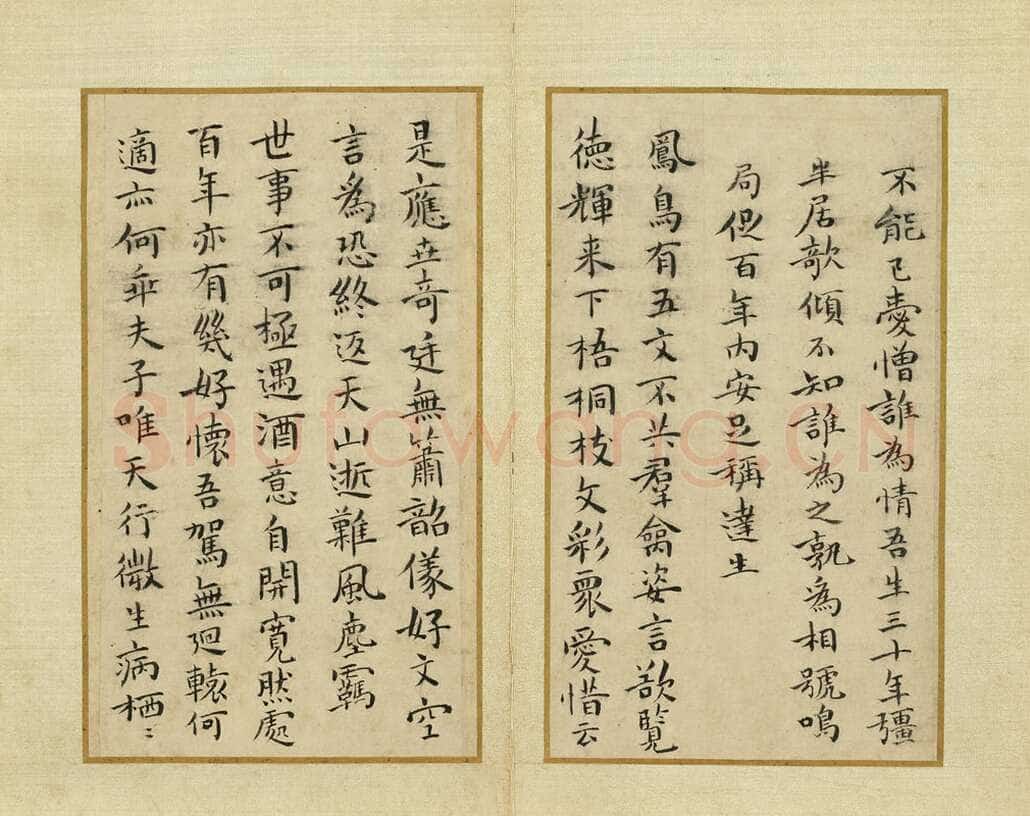 不能已憂憎誰為情吾生三十年彊
半居欹傾不知誰為之孰為相號鳴
局促百年内安足稱達生
鳳鳥有五文不共羣禽姿言欲覽
徳輝来下梧桐枝文彩眾愛惜云
是應世奇廷無簫韶儀好文空
言為恐終返天山逝難風塵羈
世事不可極遇酒意自開寬然處
百年亦有幾好懷吾駕無迴轅何
適亦何乖夫子唯天行微生病栖〻
Shufawang.CN